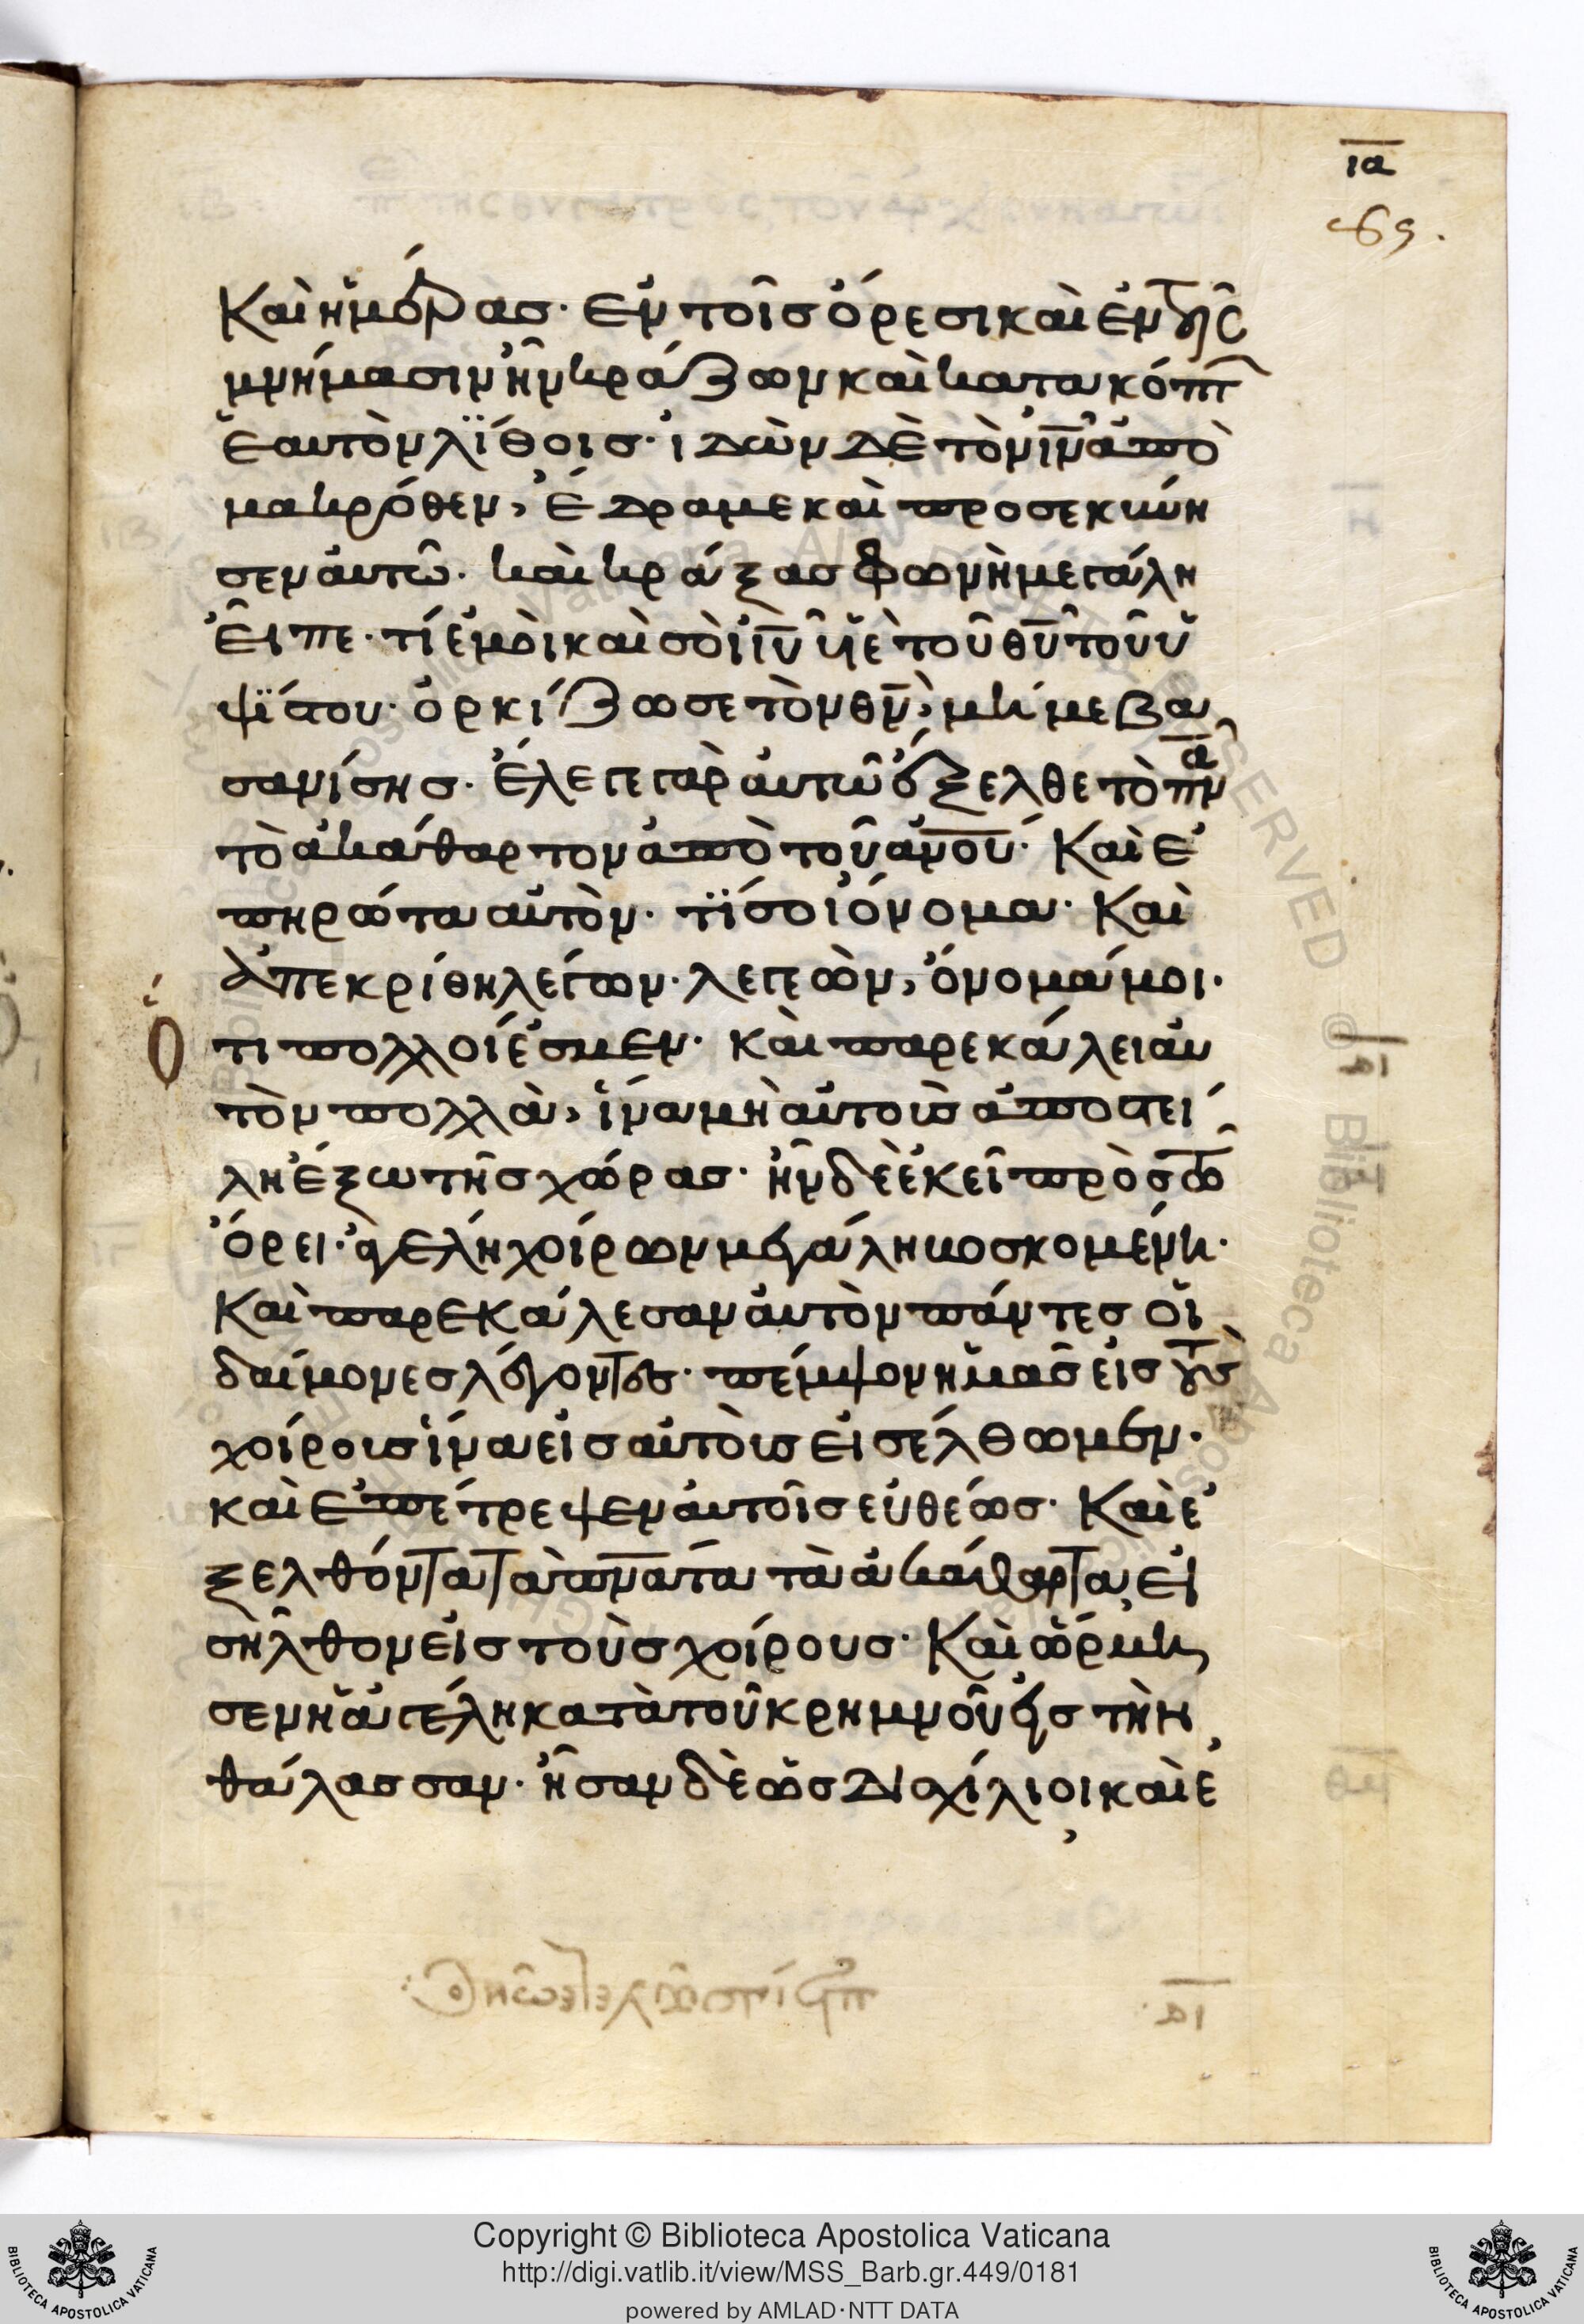 ια
69.
Καὶ ἡμέρας· ἐν τοῖς ὄρεσι καὶ ἐν τοῖς
μνήμασιν ἦν κράζων καὶ κατακόπτ
ἑαυτὸν λΐθοις· ἰδὼν δὲ τὸν ιν ἀπὸ
μακρόθεν, ἔδραμε καὶ προσεκύνη
σεν αὐτῶ· καὶ κράξας φωνὴ μεγάλη
εἶπε· τί ἐμοὶ καὶ σοὶ ιυ υἱὲ τοῦ θυ τοῦ ὑ
ψΐστου· ὁρκίζω σε τὸν θν, μή με βα
σανίσης· ἔλεγε γὰρ αὐτῶ ἔξελθε τὸ πνα
τὸ ἀκάθαρτον ἀπὸ τοῦ ανου· Καὶ ἐ
πηρώτα αὐτὸν· τΐ σοι ὄνομα· Καὶ
ἀπεκρίθη λέγων· λεγεὼν, ὄνομά μοι·
ὅ
τι πολλοί ἐσμεν· καὶ παρεκάλει αὐ
τὸν πολλὰ, ἵνα μὴ αὐτοὺς ἀποστεί
λη ἔξω τῆς χώρας· ἦν δὲ ἐκεῖ πρὸς τῶ
ὄρει· ἀγέλη χοίρων μεγάλη βοσκομένη·
Καὶ παρεκάλεσαν αὐτὸν πάντες οἱ
δαίμονες λέγοντες· πέμψον ἡμᾶς εἰς τοὺς
χοίρους ἵνα εἰς αὐτοὺς εἰσέλθωμεν·
καὶ ἐπέτρεψεν αὐτοῖς εὐθέως· Καὶ ἐ
ξελθόντα τὰ πνατα τὰ ἀκάθαρτα, εἰ
σῆλθον εἰς τοὺς χοίρους· Καὶ ὥρμη
σεν ἡ ἀγέλη κατὰ τοῦ κρημνοῦ εἰς τὴν
θάλασσαν· ἦσαν δὲ ὡς δισχίλιοι καὶ ἐ
Copyright © Biblioteca Apostolica Vaticana
http://digi.vatlib.it/view/MSS_Barb.gr.449/0181
powered by AMLAD·NTT DATA
BIBLIOTECA APOSTOLICA VATICANA
BIBLIOTECA APOSTOLICA VATICANA